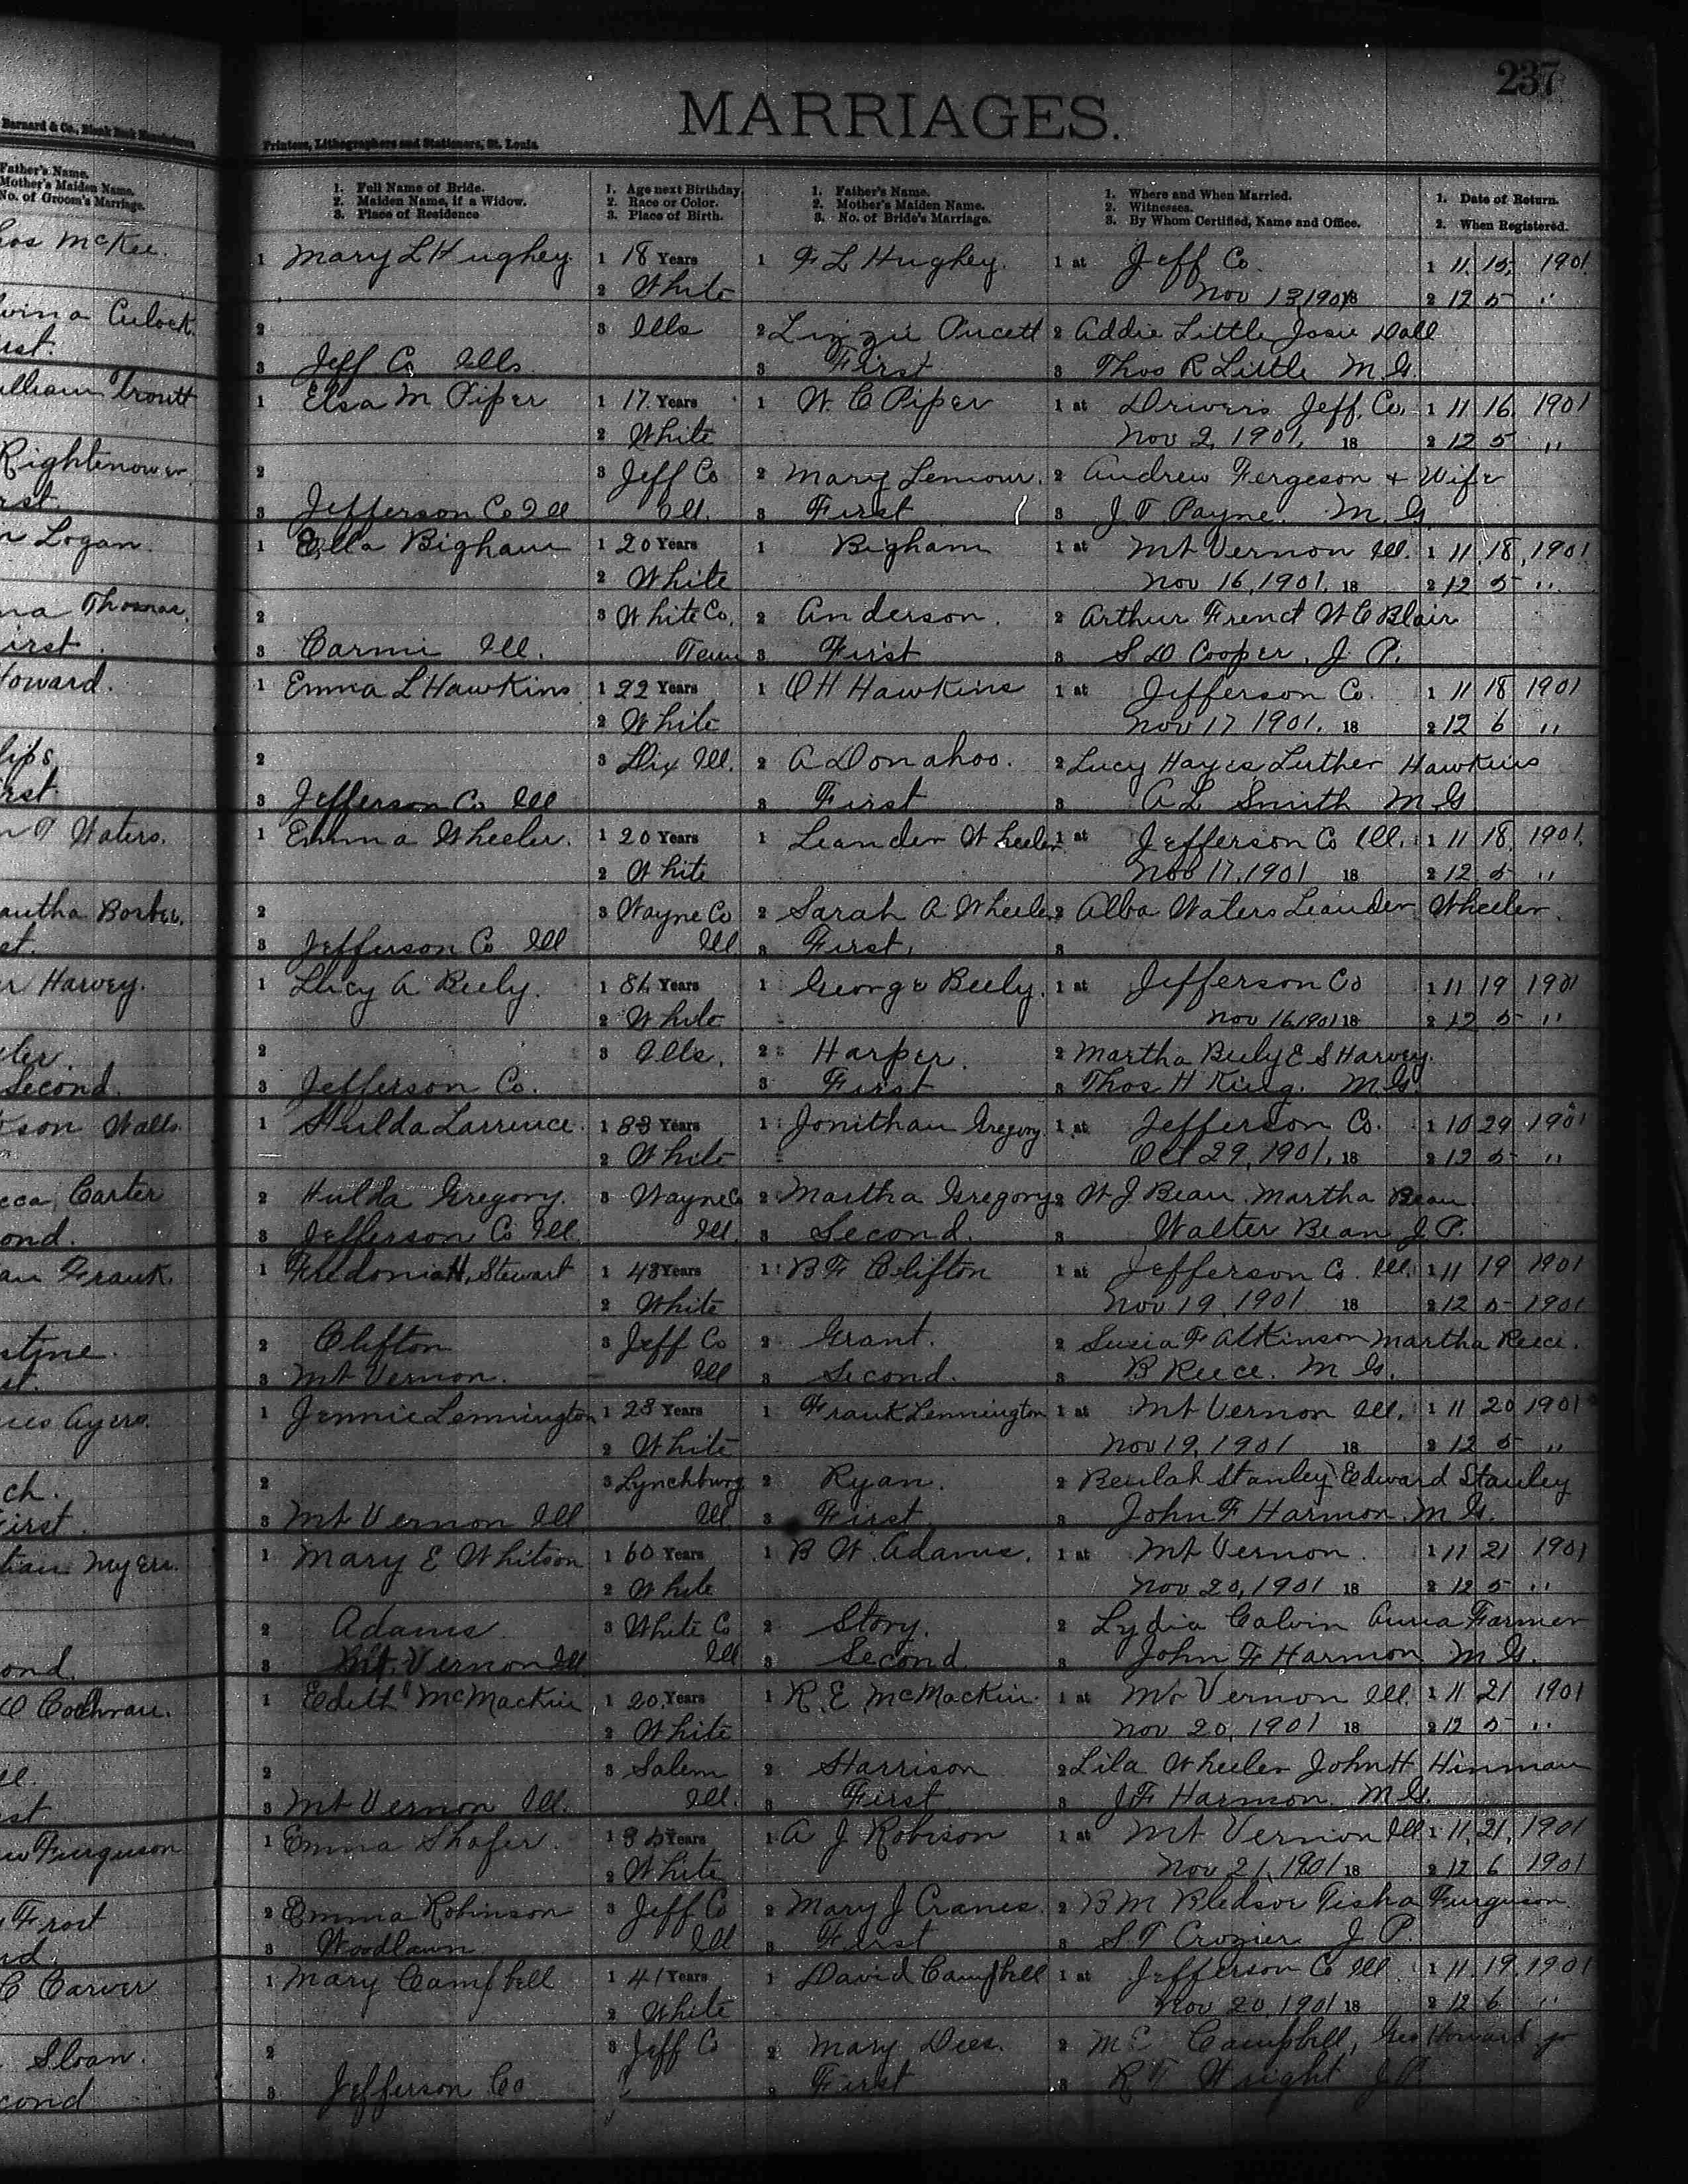 237
MARRIAGES.
Barnard & Co., Blank Book Manufacturers
Printers, Lithographers and Stationers, St. Louis.
Father's Name.
Mother's Maiden Name.
No. of Groom's Marriage.
1. Full Name of Bride.
2. Maiden Name, if a Widow.
3. Place of Residence
1. Age next Birthday.
2. Race or Color.
3. Place of Birth.
1. Father's Name.
2. Mother's Maiden Name.
3. No. of Bride's Marriage.
1. Where and When Married.
2. Witnesses.
3. By Whom Certified, Name and Office.
1. Date of Return.
2. When Registered.
McKee. 1 Mary L Hughey 1 18 Years 1 F L Hughey. 1 at Jeff Co. 1 11. 15, 1901.
2 White Nov 13 1901 18 2 12 5 "
Culock. 2 3 Ills 2 Lizzie Pucett 2 Addie Little Josie Dall
3 Jeff Co Ills. 3 First 3 Thos R Little M.G.
Troutt 1 Elsa M Piper 1 17 Years 1 W. C Piper 1 at Drivers Jeff. Co, 1 11 16. 1901
2 White Nov 2, 1901, 18 2 12 5 "
Rightenower 2 3 Jeff Co 2 Mary Lemour. 2 Andrew Fergeson & Wife
3 Jefferson Co Ill Ill. 3 First 3 J. T. Payne. M.G
Logan. 1 Ella Bigham 1 20 Years 1 Bigham 1 at Mt Vernon Ill. 1 11. 18, 1901
2 White Nov 16, 1901. 18 2 12 5 "
Thomas. 2 3 White Co, 2 Anderson. 2 Arthur French W C Blair
First. 3 Carmi Ill. Tenn 3 First 3 S D Cooper, J P.
Howard. 1 Emma L Hawkins 1 22 Years 1 O H Hawkins 1 at Jefferson Co. 1 11 18 1901
2 White Nov 17 1901. 18 2 12 6 "
2 3 Dix Ill. 2 A Donahoo. 2 Lucy Hayes Luther Hawkins
3 Jefferson Co Ill 3 First 3 A L Smith M G
Waters. 1 Emma Wheeler. 1 20 Years 1 Leander Wheeler 1 at Jefferson Co Ill. 1 11 18, 1901.
2 White Nov 17, 1901 18 2 12. 5 "
2 3 Wayne Co 2 Sarah A Wheeler 2 Alba Waters Leander Wheeler.
3 Jefferson Co Ill Ill 3 First, 3
Harvey. 1 Lucy A Beely. 1 Years 1 George Beely. 1 at Jefferson Co 1 11 19 1901
2 White Nov 16 1901 18 2 12 5 "
2 3 Ills. 2 Harper. 2 Martha Beely E S Harvey.
Second. 3 Jefferson Co. 3 First 3 Thos H King. M.G.
Walls. 1 Hulda Larrence. 1 Years 1 Jonithan Gregory. 1 at Jefferson Co. 1 10 29 1901
2 White Oct 29, 1901, 18 2 12 5 "
Carter 2 Hulda Gregory. 3 Wayne Co 2 Martha Gregory 2 W J Bean. Martha Bean.
3 Jefferson Co Ill. Ill. 3 Second. 3 Walter Bean J. P.
Frank. 1 Fredonia H. Stewart 1 48 Years 1 B F Clifton 1 at Jefferson Co. Ill. 1 11 19 1901
2 White Nov 19, 1901 18 2 12 5 1901
2 Clifton 3 Jeff Co 2 Grant. 2 Susia F Atkinson Martha Reece.
3 Mt Vernon. Ill 3 Second. 3 B Reece. M G.
Ayers. 1 Jennie Lennington 1 28 Years 1 Frank Lennington 1 at Mt Vernon Ill. 1 11 20 1901
2 White Nov 19, 1901 18 2 12 5 "
2 3 Lynchburg 2 Ryan. 2 Beulah Stanley Edward Stanley
First. 3 Mt Vernon Ill Ill. 3 First. 3 John F Harmon. M G.
Myers. 1 Mary E Whitson 1 60 Years 1 B W. Adams. 1 at Mt Vernon. 1 11 21 1901
2 White Nov 20, 1901 18 2 12 5 "
2 Adams. 3 White Co 2 Story. 2 Lydia Calvin Anna Farmer
3 Mt. Vernon Ill. Ill 3 Second. 3 John F Harmon M G.
Cochran. 1 Edith McMackin 1 20, Years 1 R. E. McMackin. 1 at Mt Vernon Ill. 1 11 21 1901
2 White Nov 20, 1901 18 2 12 5 "
2 3 Salem 2 Harrison 2 Lila Wheeler John H Hinman
3 Mt Vernon Ill. Ill. 3 First. 3 J F Harmon. M G.
Furguson 1 Emma Shafer. 1 Years 1 A J Robison 1 at Mt Vernon Ill 1 11, 21, 1901
2 White Nov 21, 1901 18 2 12 6 1901
Frost 2 Emma Robinson 3 Jeff Co 2 Mary J Cranes. 2 B M Bledsoe Tisha Furguson.
3 Woodlawn. Ill 3 First 3 S. T Crozier J P.
Carver 1 Mary Campbell 1 41 Years 1 David Campbell 1 at Jefferson Co Ill. 1 11. 19. 1901
2 White Nov 20, 1901 18 2 12 6 "
Sloan. 2 3 Jeff Co 2 Mary Dees. 2 M E Campbell, Geo Howard jr
3 Jefferson Co 3 First 3 R T Wright J.P.